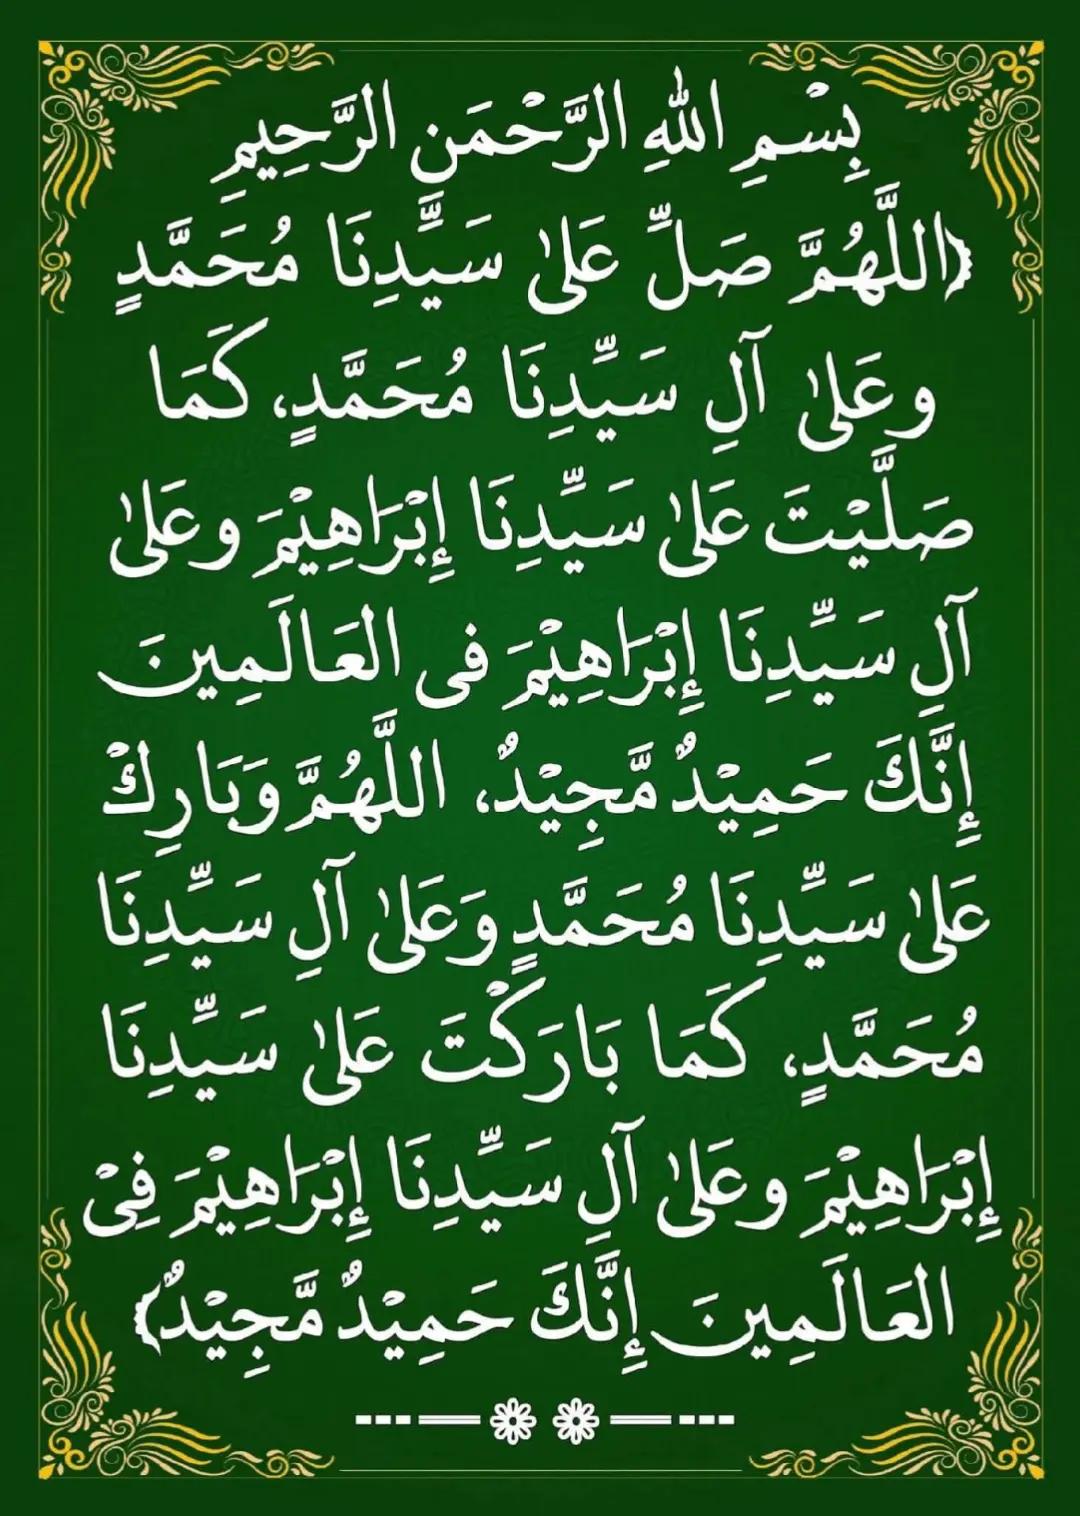 بِسْمِ اللهِ الرَّحْمَنِ الرَّحِيمِ
﴿اللَّهُمَّ صَلِّ عَلىٰ سَيِّدِنَا مُحَمَّدٍ
وعَلىٰ آلِ سَيِّدِنَا مُحَمَّدٍ، كَمَا
صَلَّيْتَ عَلىٰ سَيِّدِنَا إِبْرَاهِيْمَ وعَلىٰ
آلِ سَيِّدِنَا إِبْرَاهِيْمَ فى العَالَمِينَ
إِنَّكَ حَمِيْدٌ مَّجِيْدٌ، اللَّهُمَّ وَبَارِكْ
عَلىٰ سَيِّدِنَا مُحَمَّدٍ وَعَلىٰ آلِ سَيِّدِنَا
مُحَمَّدٍ، كَمَا بَارَكْتَ عَلىٰ سَيِّدِنَا
إِبْرَاهِيْمَ وعَلىٰ آلِ سَيِّدِنَا إِبْرَاهِيْمَ فِىْ
العَالَمِينَ إِنَّكَ حَمِيْدٌ مَّجِيْدٌ﴾